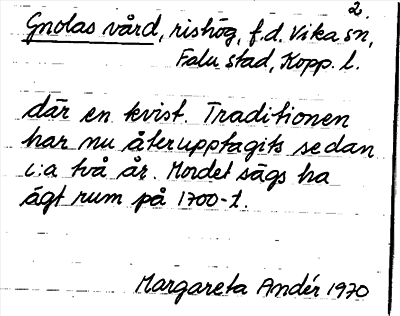 2.
Gnolas vård, rishög, f.d. Vika sn,
Falu stad, Kopp. l.
där en kvist. Traditionen
har nu återupptagits sedan
c:a två år. Mordet sägs ha
ägt rum på 1700-t.
Margareta Andér 1970